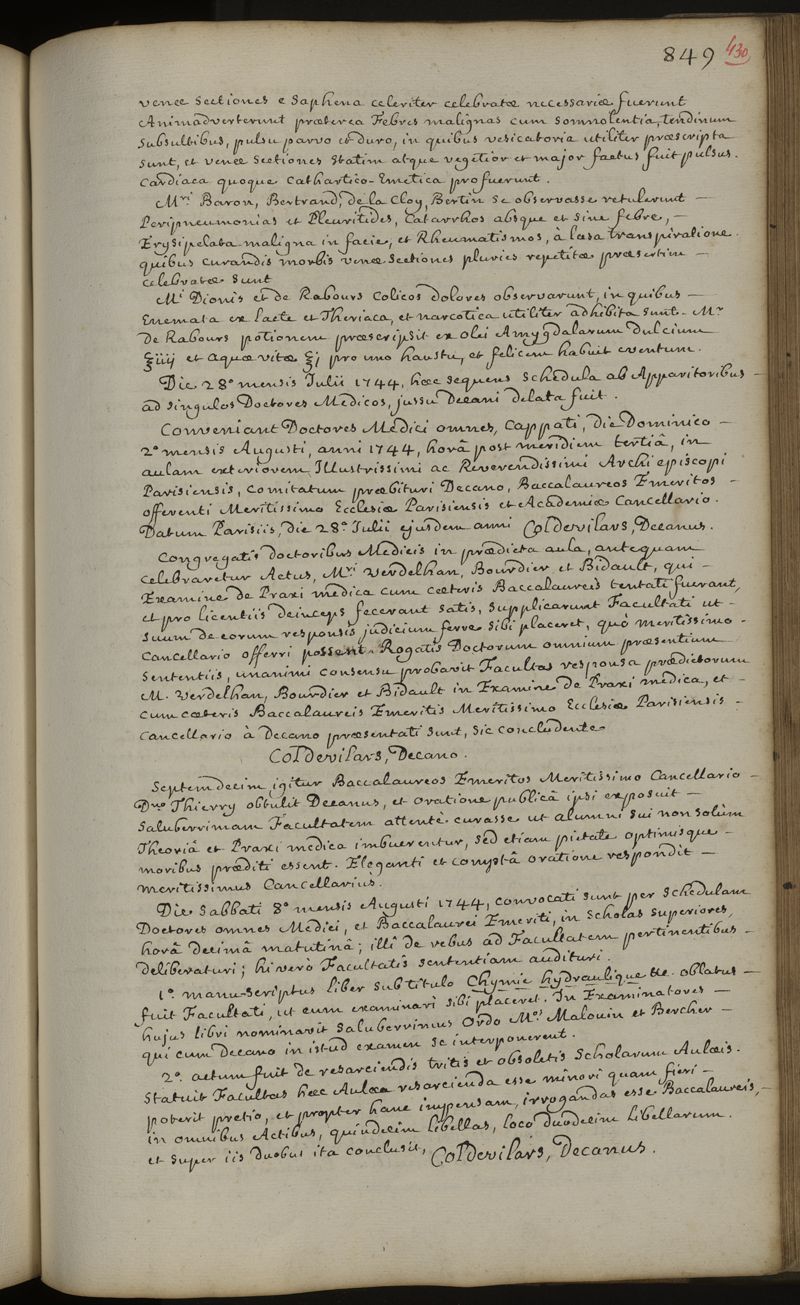 849 430
venæ Sectiones e Saphena celeriter celebratæ necessariæ fuerunt
Animadverterunt præterea Febres malignas cum Somnolentia, tendinum
Subsultibus, pulsu parvo et duro, in quibus vesicatoria utiliter præscripta
sunt, et venæ Sectiones statim atque vegetior et major factus fuit pulsus.
Cardiaca quoque Cathartico-Emetica profuerunt.
M.ri Baron, Bertrand, de la Cloy, Bertin se observasse retulerunt —
Peripneumonias et Pleuritides, Catarrhos absque et sine febre, —
Erysipelata maligna in facie, et Rheumatismos, à læsa transpiratione.
quibus curandis morbis venæ Sectiones pluries repetitæ præsertim —
celebratæ sunt
M.i Dionis et de Rabours Colicos dolores observarunt, in quibus —
Enemata ex lacte et Theriaca, et narcotica utiliter adhibita sunt. M.r
De Rabours potionem præscripsit ex olei Amygdalarum dulcium
℥iiij et aquæ vitæ ℥j pro uno haustu, et felicem habuit eventum.
Die 28.a mensis Iulii 1744, hæc sequens Schedula ab Apparitoribus —
ad singulos Doctores Medicos, jussu Decani delata fuit.
Conveniant Doctores Medici omnes, Cappati, die Dominico —
2.a mensis Augusti, anni 1744, horâ post meridiem tertiâ, in
aulam exteriorem Illustrissimi ac Reverendissimi Archiepiscopi
Parisiensis, Comitatum præbituri Decano, Baccalaureos Emeritos —
offerenti Meritissimo Ecclesiæ Parisiensis et Academiæ Cancellario.
Datum Parisiis, die 28.a Iulii ejusdem anni Col De vilars, Decanus.
Congregatis doctoribus Medicis in prædicta aula, antequam
celebraretur Actus, M.ri Verdelhan, Bourdier et Bidault, qui —
Examine de Praxi medica cum cæteris Baccalaureis tentati fuerant,
et pro licentiis deinceps fecerant satis, Supplicarunt Facultati ut —
suum de eorum responsis judicium ferre sibi placeret, quò meritissimo —
Cancellario offerri possent. Rogatis Doctorum omnium præsentium
Sententiis, unanimi consensu probavit Facultas responsa prædictorum
M. Verdelhan, Bourdier et Bidault in Examine De Praxi medica, et —
cum cæteris Baccalaureis Emeritis Meritissimo Ecclesiæ Parisiensis —
Cancellario à Decano præsentati sunt, sic concludente
Col De vilars, Decano.
Septemdecim igitur Baccalaureos Emeritos Meritissimo Cancellario —
D.no Thierry obtulit Decanus, et oratione publicâ ipsi exposuit —
Saluberrimam Facultatem attentè curasse ut alumni sui non solùm
Theoriâ et Praxi medica imbuerentur, sed etiam pietate optimisque —
moribus præditi essent. Eleganti et comptâ oratione respondit —
meritissimus Cancellarius.
Die Sabbati 8.a mensis Augusti 1744, convocati sunt per Schedulam
Doctores omnes Medici, et Baccalaurei Emeriti, in Scholas Superiores,
horâ decimâ matutinâ; illi de rebus ad Facultatem pertinentibus —
deliberaturi; hi verò Facultatis sententiam audituri.
1.o manu-scriptus liber sub titulo Chymie hydraulique &c. oblatus —
fuit Facultati, ut eum examinari sibi placeret. In Examinatores —
hujus libri nominavit Saluberrimus Ordo M.os Malouin et Bercher —
qui cum Decano in istud examen se interponerent.
2.o actum fuit de resarciendis tritis et obsoletis Scholarum Aulæis.
Statuit Facultas hæc Aulæa resarcienda esse minori quam fieri —
poterit pretio, et propter hanc impensam, irrogandas esse Baccalaureis, —
in omnibus Actibus, quindecim libellas, loco duodecim libellarum.
et super iis duobus ita conclusit, Col De vilars, Decanus.